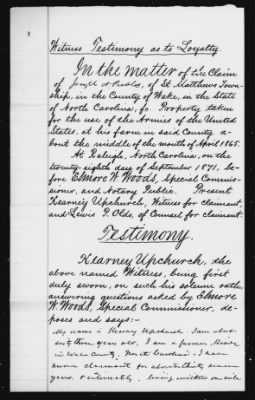 Witness Testimony as to Loyalty
In the matter of the Claim
of Joseph A. of St. Matthews Town-
ship, in the County of Wake, in the State
of North Carolina, for Property taken
for the use of the Armies of the United
States, at his farm in said County a-
bout the middle of the month of April 1865.
At Raleigh, North Carolina, on the
twenty-eighth day of September 1871, be-
fore Elmore W. Woods, Special Commis-
sioner, and Notary Public. Present
Kearney Upchurch, Witness for claimant,
and Lewis P. Olds, of Counsel for claimant.
Testimony.
Kearney Upchurch, the
above named Witness, being first
duly sworn, on such his solemn oath,
answering questions asked by Elmore
W. Woods, Special Commissioner, de-
poses and says:-
My name is Kearney Upchurch. I am about
sixty three years old. I am a farmer. Reside
in Wake County, North Carolina. I have
known claimant for about thirty
years & intimately - living within one mile